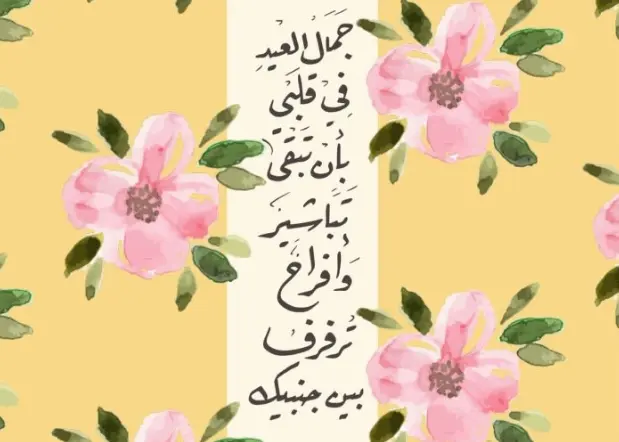 جَمَال العيدِ
في قلبَي
بأن تَبْقى
تَبَاشيرَ
وَأفراحَ
تُرفرف
بين جنبيك